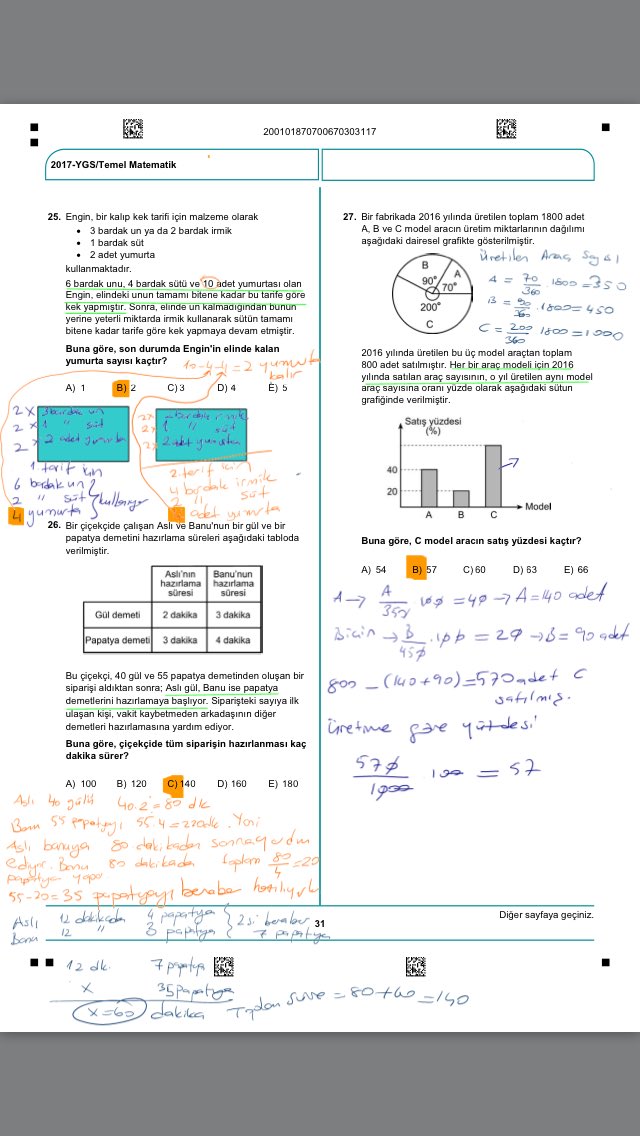 200101870700670303117
2017-YGS/Temel Matematik
25. Engin, bir kalıp kek tarifi için malzeme olarak
• 3 bardak un ya da 2 bardak irmik
• 1 bardak süt
• 2 adet yumurta
kullanmaktadır.
6 bardak unu, 4 bardak sütü ve 10 adet yumurtası olan
Engin, elindeki unun tamamı bitene kadar bu tarife göre
kek yapmıştır. Sonra, elinde un kalmadığından bunun
yerine yeterli miktarda irmik kullanarak sütün tamamı
bitene kadar tarife göre kek yapmaya devam etmiştir.
Buna göre, son durumda Engin'in elinde kalan
yumurta sayısı kaçtır?
10-4-4=2 yumurta
kalır
A) 1 B) 2 C) 3 D) 4 E) 5
2x 3 bardak un
2x 1 " süt
2x 2 adet yumurta
2x 2 bardak irmik
2x 1 " süt
2x 2 adet yumurta
1 tarif için
6 bardak un
2 " süt
4 yumurta
kullanıyor
2. tarif için
4 bardak irmik
2 " süt
adet yumurta
26. Bir çiçekçide çalışan Aslı ve Banu'nun bir gül ve bir
papatya demetini hazırlama süreleri aşağıdaki tabloda
verilmiştir.
Aslı'nın hazırlama süresi Banu'nun hazırlama süresi
Gül demeti 2 dakika 3 dakika
Papatya demeti 3 dakika 4 dakika
Bu çiçekçi, 40 gül ve 55 papatya demetinden oluşan bir
siparişi aldıktan sonra; Aslı gül, Banu ise papatya
demetlerini hazırlamaya başlıyor. Siparişteki sayıya ilk
ulaşan kişi, vakit kaybetmeden arkadaşının diğer
demetleri hazırlamasına yardım ediyor.
Buna göre, çiçekçide tüm siparişin hazırlanması kaç
dakika sürer?
A) 100 B) 120 C) 140 D) 160 E) 180
Aslı 40 gülü 40.2=80 dk
Banu 55 papatyayı 55.4=220dk. Yani
Aslı banuya 80 dakikadan sonra yardım
ediyor. Banu 80 dakikada toplam 80/4=20
papatya yapar
55-20=35 papatyayı beraber hazırlıyorlar
Aslı 12 dakikada 4 papatya
Banu 12 " 3 papatya
2si beraber
7 papatya
12 dk. 7 papatya
x 35 papatya
x=60 dakika Toplam süre=80+60=140
27. Bir fabrikada 2016 yılında üretilen toplam 1800 adet
A, B ve C model aracın üretim miktarlarının dağılımı
aşağıdaki dairesel grafikte gösterilmiştir.
Üretilen Araç Sayısı
B
A
90°
70°
200°
C
A = 70/360 . 1800=350
B = 90/360 . 1800=450
C = 200/360 1800=1000
2016 yılında üretilen bu üç model araçtan toplam
800 adet satılmıştır. Her bir araç modeli için 2016
yılında satılan araç sayısının, o yıl üretilen aynı model
araç sayısına oranı yüzde olarak aşağıdaki sütun
grafiğinde verilmiştir.
Satış yüzdesi
(%)
40
20
A B C
Model
Buna göre, C model aracın satış yüzdesi kaçtır?
A) 54 B) 57 C) 60 D) 63 E) 66
A → A/350 100=40 → A=140 adet
B için → B/450 .100=20 → B=90 adet
800-(140+90)=570 adet C
satılmış.
Üretime göre yüzdesi
570/1000 . 100 = 57
Diğer sayfaya geçiniz.
31